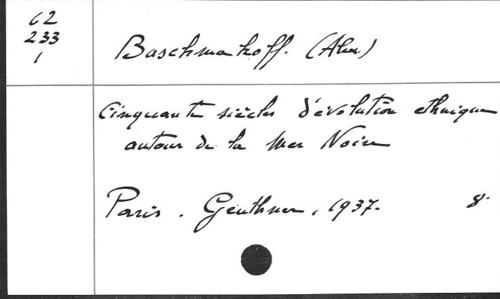 62
233
1
Baschmakoff. (Alex)
Cinquante siècles d'évolution ethnique
autour de la Mer Noire
Paris. Geuthner, 1937. 8°